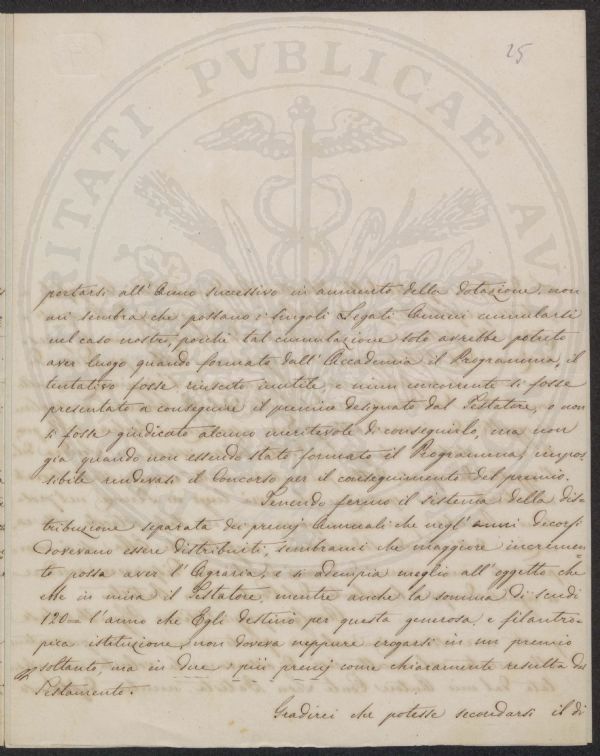 25
portarsi all'Anno successivo in aumento della dotazione, non
mi sembra che possano i singoli Legati Annui cumularsi
nel caso nostro, poichè tal cumulazione solo avrebbe potuto
aver luogo quando formato dall'Accademia il Programma, il
tentativo fosse riuscito inutile, e niun concorrente si fosse
presentato a conseguire il premio designato dal Testatore, o non
si fosse giudicato alcuno meritevole di conseguirlo, ma non
già quando non essendo stato formato il Programma, impos
sibile rendevasi il Concorso per il conseguimento del premio.
Tenendo fermo il sistema della dis
tribuzione separata dei premj Annuali che negl'anni decorsi
dovevano essere distribuiti, sembrami che maggiore incremen=
to possa aver l'Agraria, e si adempia meglio all'oggetto che
ebbe in mira il Testatore, mentre anche la somma di scudi
120= l'anno che Egli destinò per questa generosa, e filantro=
pica istituzione, non doveva neppure erogarsi in un premio
soltanto, ma in due o più premj come chiaramente resulta dal
Testamento.
Gradirei che potesse secondarsi il di
VBLICAE